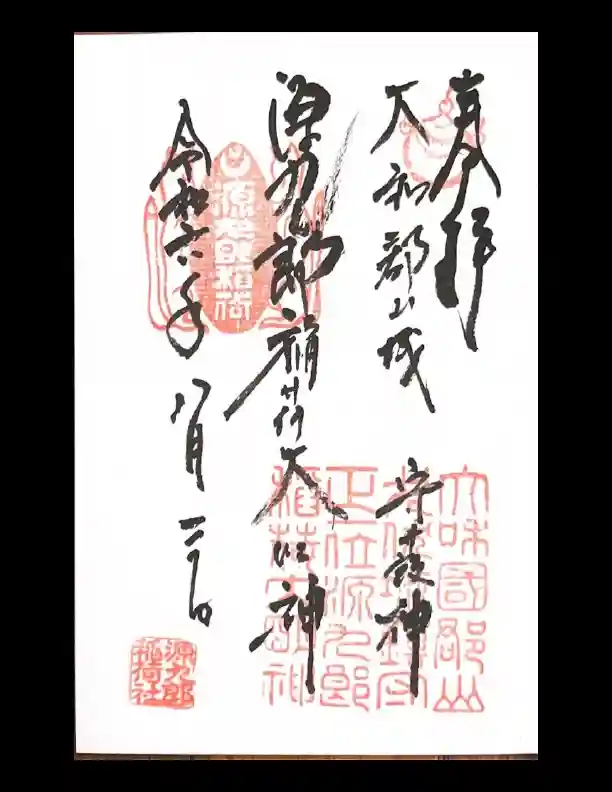 奉拝
大和郡山城
守護神
源九郎稲荷大明神
令和六年
八月二日
源九郎稲荷
大和國郡山
正一位源九郎
稲荷大明神
源九郎
稲荷社